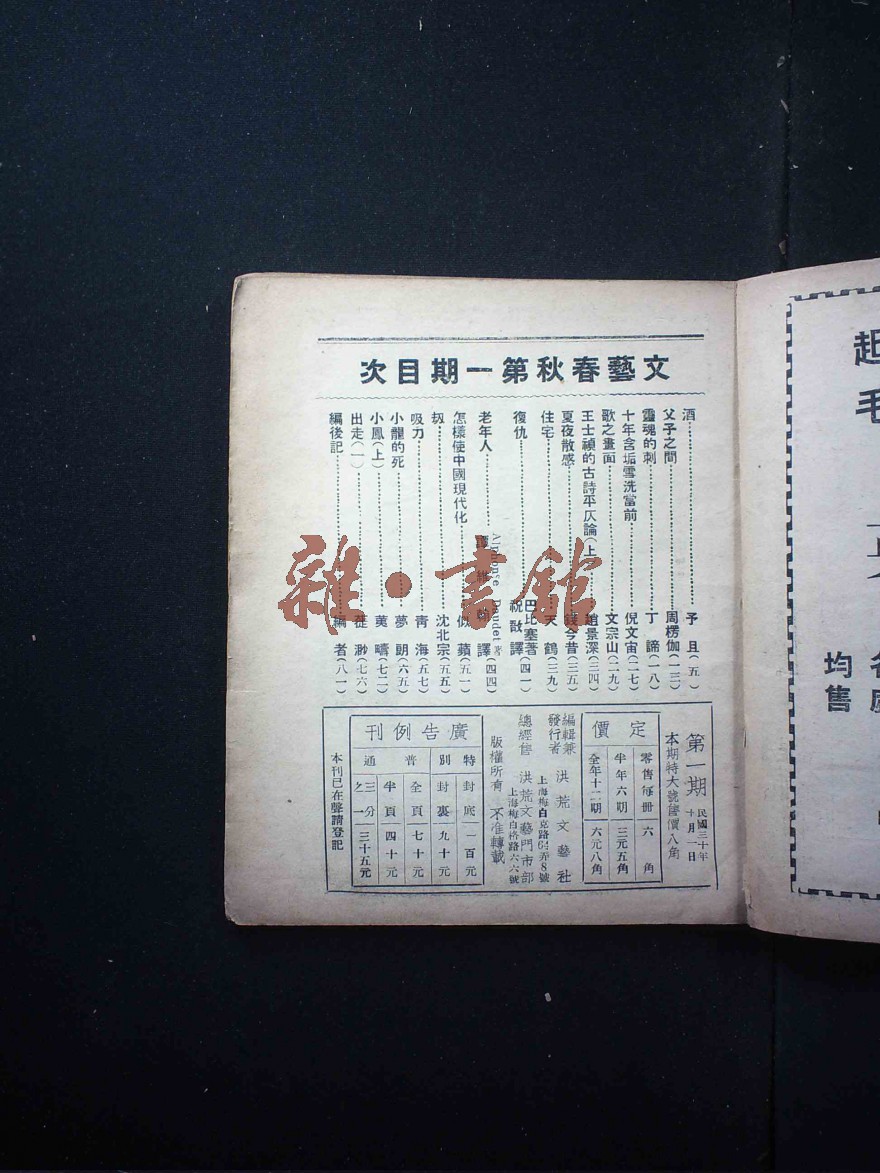 文藝春秋第一期目次
酒……予且(五)
父子之間……周楞伽(一三)
靈魂的刺……丁諦(一八)
十年含垢雪洗當前……倪文宙(二七)
歌之畫面……文宗山(二九)
王士禎的古詩平仄論(上)……趙景深(三四)
夏夜散感……錢今昔(三五)
住宅……天鶴(三九)
復仇……巴比塞著 祝敔譯(四一)
老年人……Alphonse Daudet著 譯(四四)
怎樣使中國現代化……似蘋(五一)
㧓……沈北宗(五五)
吸力……青海(五七)
小龍的死……夢朗(六五)
小鳳(上)……萬疇(七二)
出走(一)……莛渺(七六)
編後記……編者(八一)
第一期 民國三十年十月一日
本期特大號售價八角
定價
零售每冊 六角
半年六期 三元五角
全年十二期 六元八角
編輯兼發行者 洪荒文藝社
上海梅白克路64弄8號
總經售 洪荒文藝門市部
上海梅白格路六六號
版權所有 不准轉載
廣告例刊
特別 封底 一百元
封裏 九十元
普通 全頁 七十元
半頁 四十元
三分之一 三十五元
本刊已在聲請登記
雜·書館
起
毛
均售